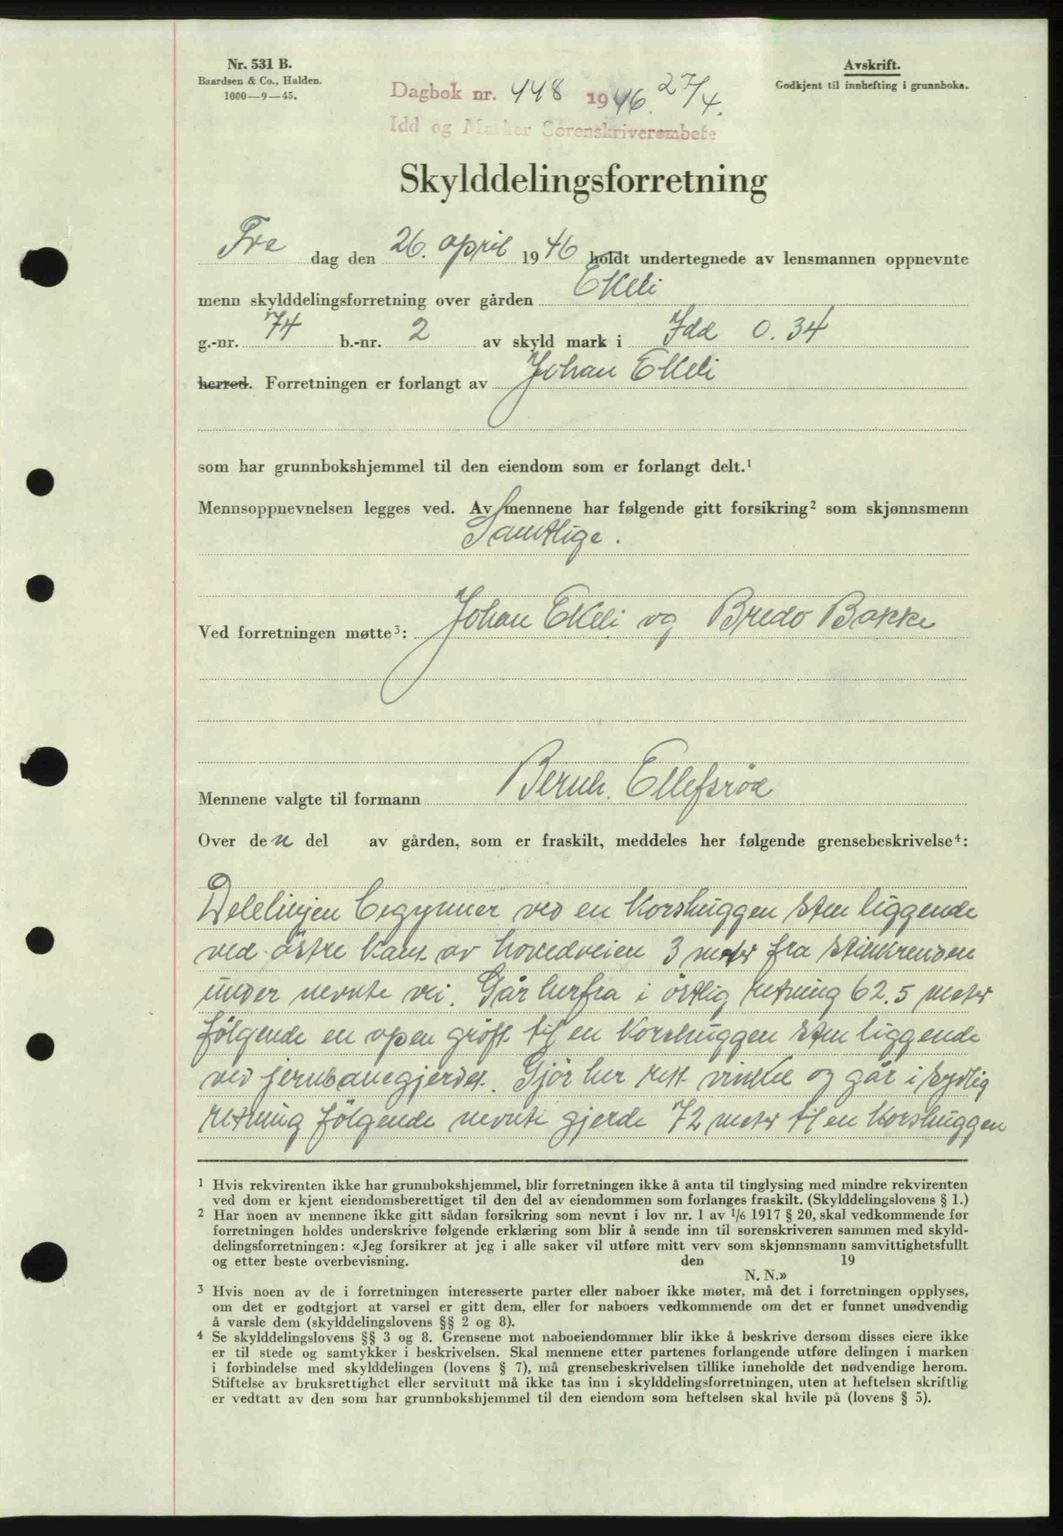 Nr. 531 B.
Baardsen & Co., Halden.
1000—9—45.
Avskrift.
Godkjent til innhefting i grunnboka.
Dagbok nr. 448 1946. 27/4.
Idd og Marker Sorenskriverembete
Skylddelingsforretning
Fre dag den 26. april 1946 holdt undertegnede av lensmannen oppnevnte
menn skylddelingsforretning over gården Ekeli
g.-nr. 74 b.-nr. 2 av skyld mark i Idd 0.34
herred. Forretningen er forlangt av Johan Ekeli
som har grunnbokshjemmel til den eiendom som er forlangt delt.¹
Mennsoppnevnelsen legges ved. Av mennene har følgende gitt forsikring² som skjønnsmenn
Samtlige.
Ved forretningen møtte³: Johan Ekeli og Bredo Bakke
Mennene valgte til formann Bernh. Ellefsrød
Over den del av gården, som er fraskilt, meddeles her følgende grensebeskrivelse⁴:
Delelinjen begynner ved en korshuggen sten liggende
ved östre kant av hovedveien 3 meter fra
under nevnte vei. Går herfra i östlig retning 62.5 meter
fölgende en open gröft til en korshuggen sten liggende
ved jernbanegjerdet. Gjör her rett vinkel og går i sydlig
retning fölgende nevnte gjerde 72 meter til en korshuggen
¹ Hvis rekvirenten ikke har grunnbokshjemmel, blir forretningen ikke å anta til tinglysing med mindre rekvirenten
ved dom er kjent eiendomsberettiget til den del av eiendommen som forlanges fraskilt. (Skylddelingslovens § 1.)
² Har noen av mennene ikke gitt sådan forsikring som nevnt i lov nr. 1 av 1/6 1917 § 20, skal vedkommende før
forretningen holdes underskrive følgende erklæring som blir å sende inn til sorenskriveren sammen med skyld-
delingsforretningen: «Jeg forsikrer at jeg i alle saker vil utføre mitt verv som skjønnsmann samvittighetsfullt
og etter beste overbevisning. den 19
N. N.»
³ Hvis noen av de i forretningen interesserte parter eller naboer ikke møter, må det i forretningen opplyses,
om det er godtgjort at varsel er gitt dem, eller for naboers vedkommende om det er funnet unødvendig
å varsle dem (skylddelingslovens §§ 2 og 8).
⁴ Se skylddelingslovens §§ 3 og 8. Grensene mot naboeiendommer blir ikke å beskrive dersom disses eiere ikke
er til stede og samtykker i beskrivelsen. Skal mennene etter partenes forlangende utføre delingen i marken
i forbindelse med skylddelingen (lovens § 7), må grensebeskrivelsen tillike inneholde det nødvendige herom.
Stiftelse av bruksrettighet eller servitutt må ikke tas inn i skylddelingsforretningen, uten at heftelsen skriftlig
er vedtatt av den som har grunnbokshjemmel til den eiendom som heftelsen skal hvile på (lovens § 5).